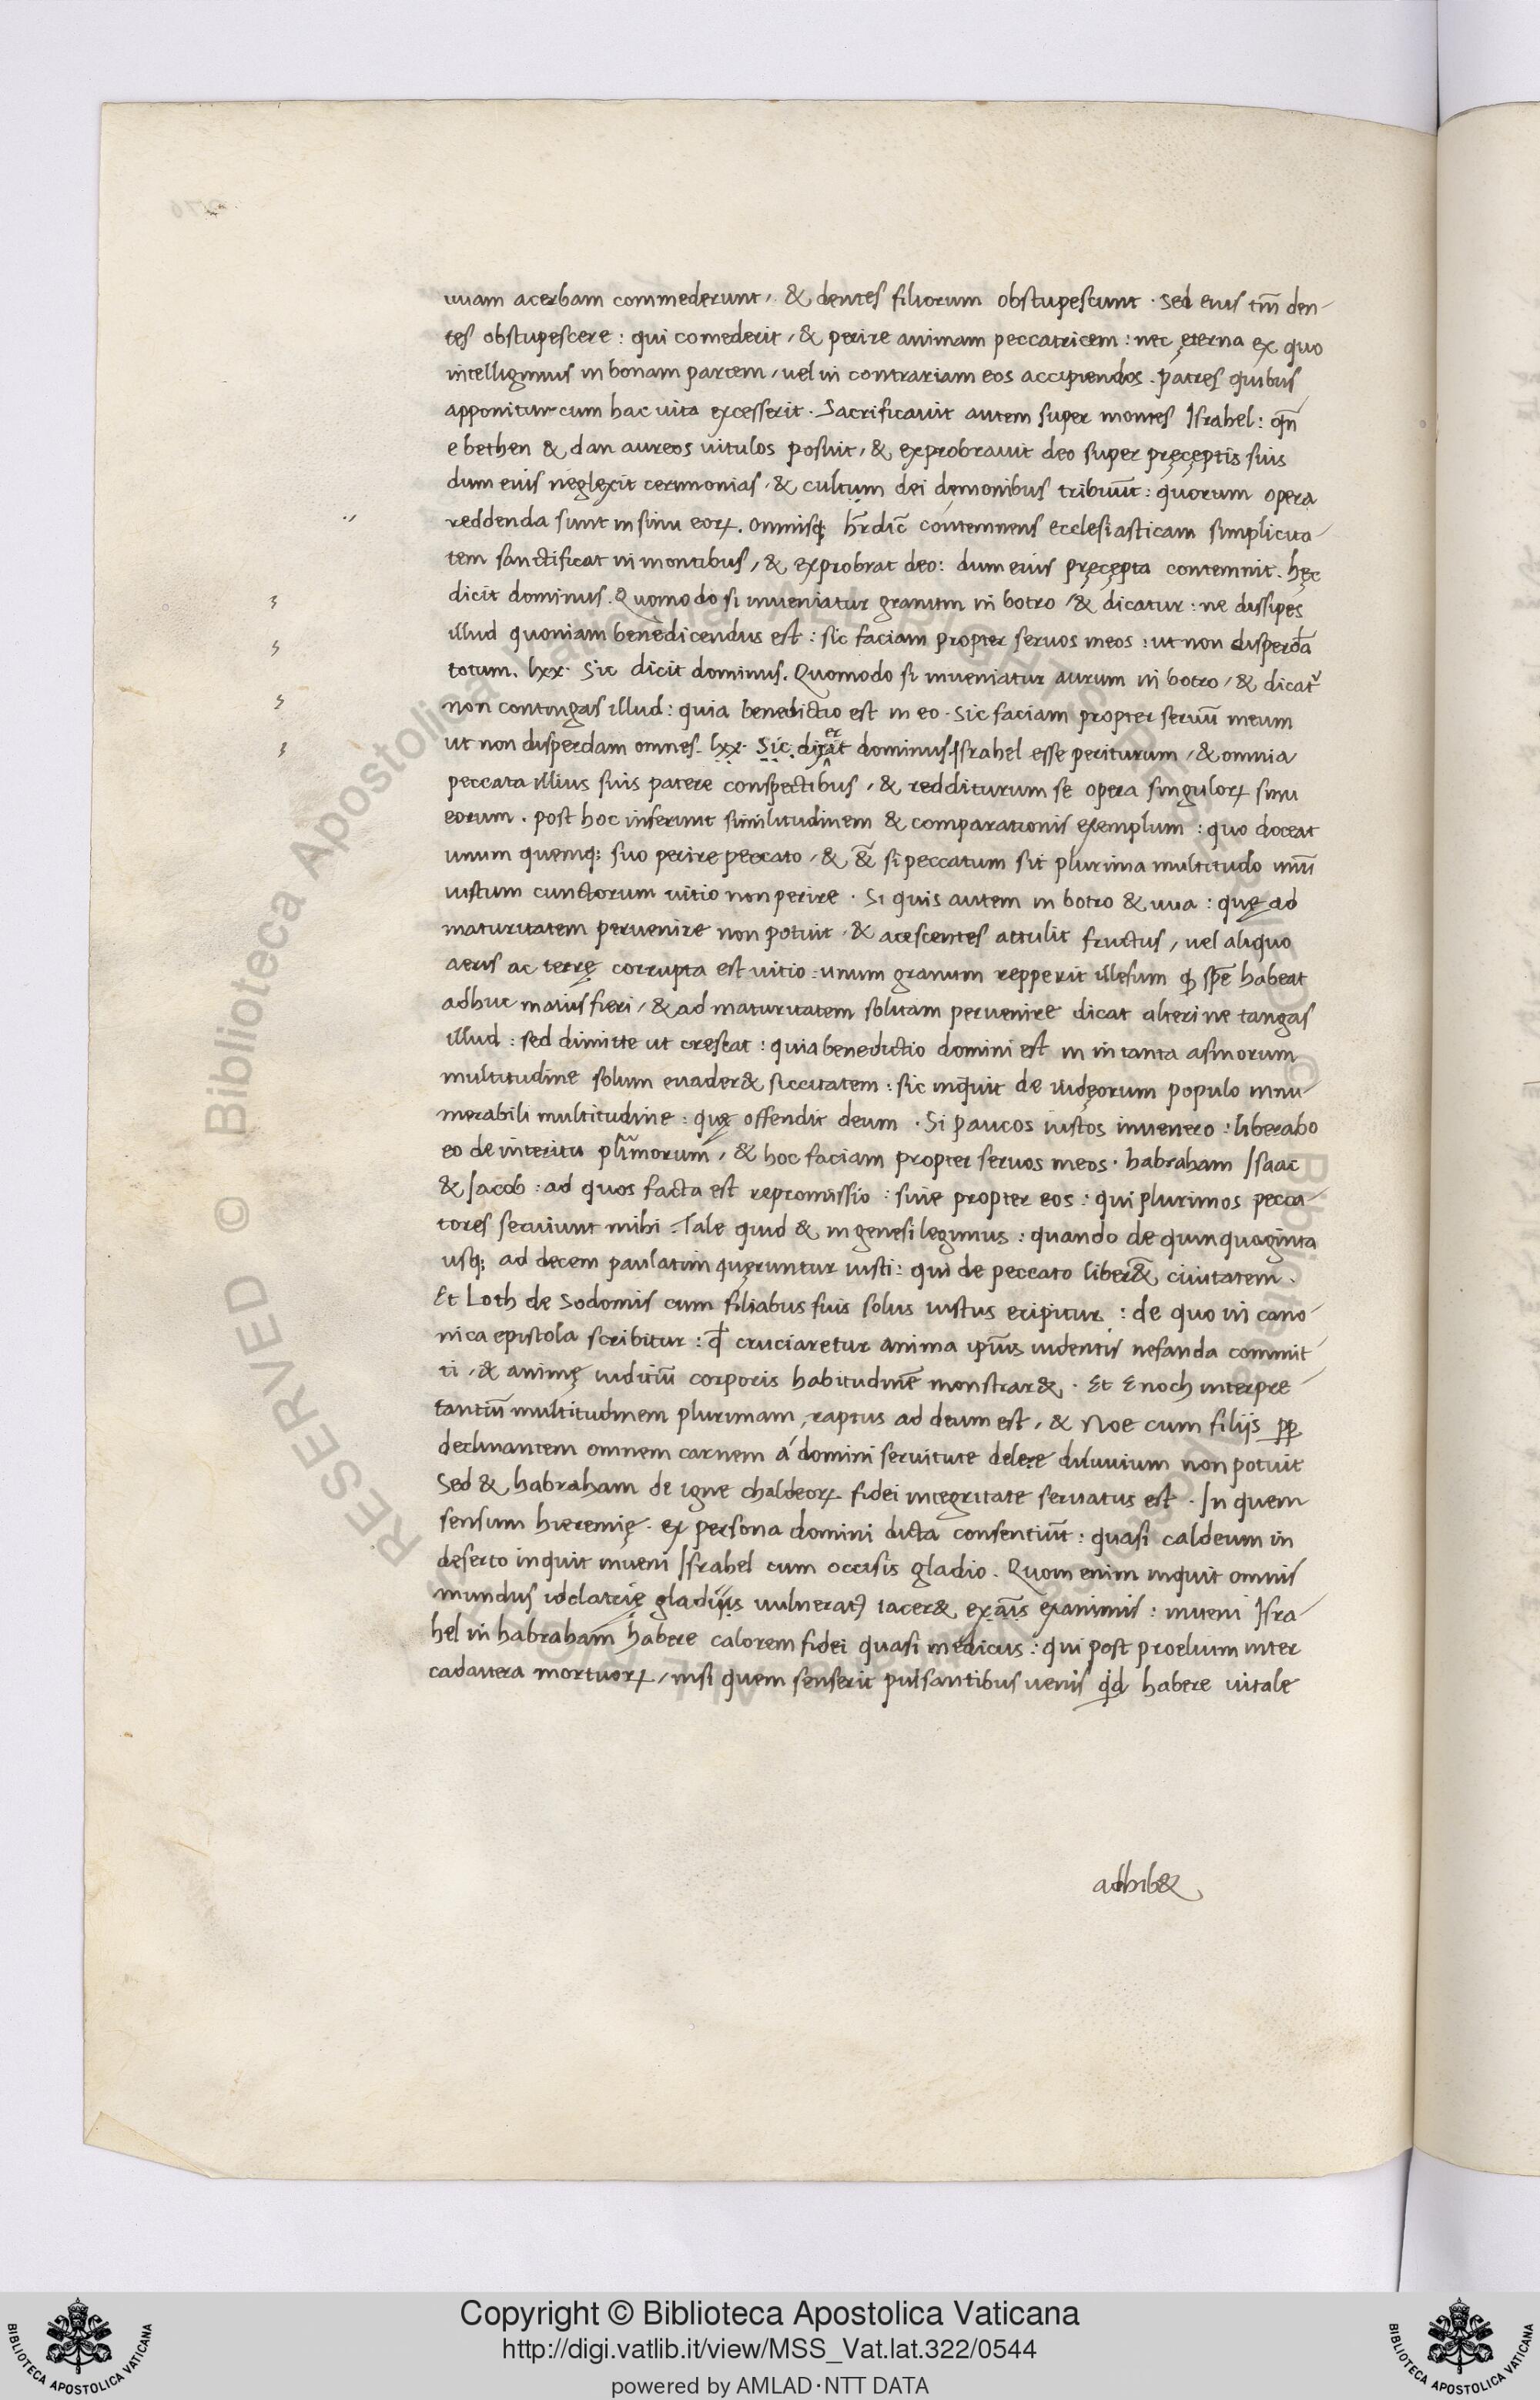 uuam acerbam commederunt, & dentes filiorum obstupescunt. sed eius tm̄ den-
tes obstupescere: qui comederit, & perire animam peccatricem: nec ęterna ex quo
intelligimus in bonam partem, uel in contrariam eos accipiendos. patres quibus
apponitur cum hac uita excesserit. Sacrificauit autem super montes Israhel: qn̄
e bethen & dan aureos uitulos posuit, & exprobrauit deo super pręceptis suis
dum eius neglexit cerimonias, & cultum dei demonibus tribuūt: quorum opera
reddenda sunt in sinu eoꝝ. omnisq; hr̄dic̄ contemnens ecclesiasticam simplicita-
tem sanctificat in montibus, & exprobrat deo: dum eius pręcepta contemnit. hęc
dicit dominus. Quomodo si inueniatur granum in botro, & dicatur: ne dissipes
illud quoniam benedicendus est: sic faciam propter seruos meos: ut non disperdā
totum. lxx. Sic dicit dominus. Quomodo si inueniatur aurum in botro, & dicat᷑
non contingas illud: quia benedictio est in eo. Sic faciam propter seruū meum
ut non disperdam omnes. lxx. Sic. dixat er dominus Israhel esse periturum, & omnia
peccata illius suis patere conspectibus, & redditurum se opera singuloꝝ sinu
eorum. post hoc inferunt similitudinem & comparationis exemplum: quo doceat
unum quemq; suo perire peccato, & &̄ si peccatum sit plurima multitudo unū
iustum cunctorum uitio non perire. Si quis autem in botro & uua: quę ad
maturitatem peruenire non potuit, & acescentes attulit fructus, uel aliquo
aeris ac terrę corrupta est uitio: unum granum repperit illesum ꝙ spē habeat
adhuc maius fieri, & ad maturitatem solitam peruenire dicat alteri ne tangas
illud: sed dimitte ut crescat: quia benedictio domini est in in tanta asinorum
multitudine solum euader& siccitatem: sic inquit de iudęorum populo innu-
merabili multitudine: quę offendit deum. Si paucos iustos inuenero: liberabo
eo de interitu plīmorum, & hoc faciam propter seruos meos. habraham Isaac
& Iacob: ad quos facta est repromissio: siue propter eos: qui plurimos pecca-
tores seruiunt mihi. Tale quid & in genesi legimus: quando de quinquaginta
usq; ad decem paulatim quęruntur iusti: qui de peccato liber& ciuitatem.
Et Loth de Sodomis cum filiabus suis solus iustus eripitur: de quo in cano-
nica epistola scribitur: ꝙ cruciaretur anima ip̄ius uidentis nefanda commit-
ti, & animę iuditiū corporis habitudinē monstrar&. Et Enoch interpre-
tantiū multitudinem plurimam, raptus ad deum est, & Noe cum filijs ꝓp
declinantem omnem carnem a domini seruitute delere diluuium non potuit
Sed & habraham de igne chaldeoꝝ fidei integritate seruatus est. In quem
sensum hieremię. ex persona domini dicta consentiūt: quasi caldeum in
deserto inquit inueni Israhel cum occisis gladio. Quom enim inquit omnis
mundus idolatrię gladijs uulneratꝰ iacer& exāis exanimis: inueni Isra-
hel in habraham habere calorem fidei quasi medicus: qui post proelium inter
cadauera mortuoꝝ, nisi quem senserit pulsantibus uenis qd habere uitale
adhib&
Copyright © Biblioteca Apostolica Vaticana
http://digi.vatlib.it/view/MSS_Vat.lat.322/0544
powered by AMLAD·NTT DATA